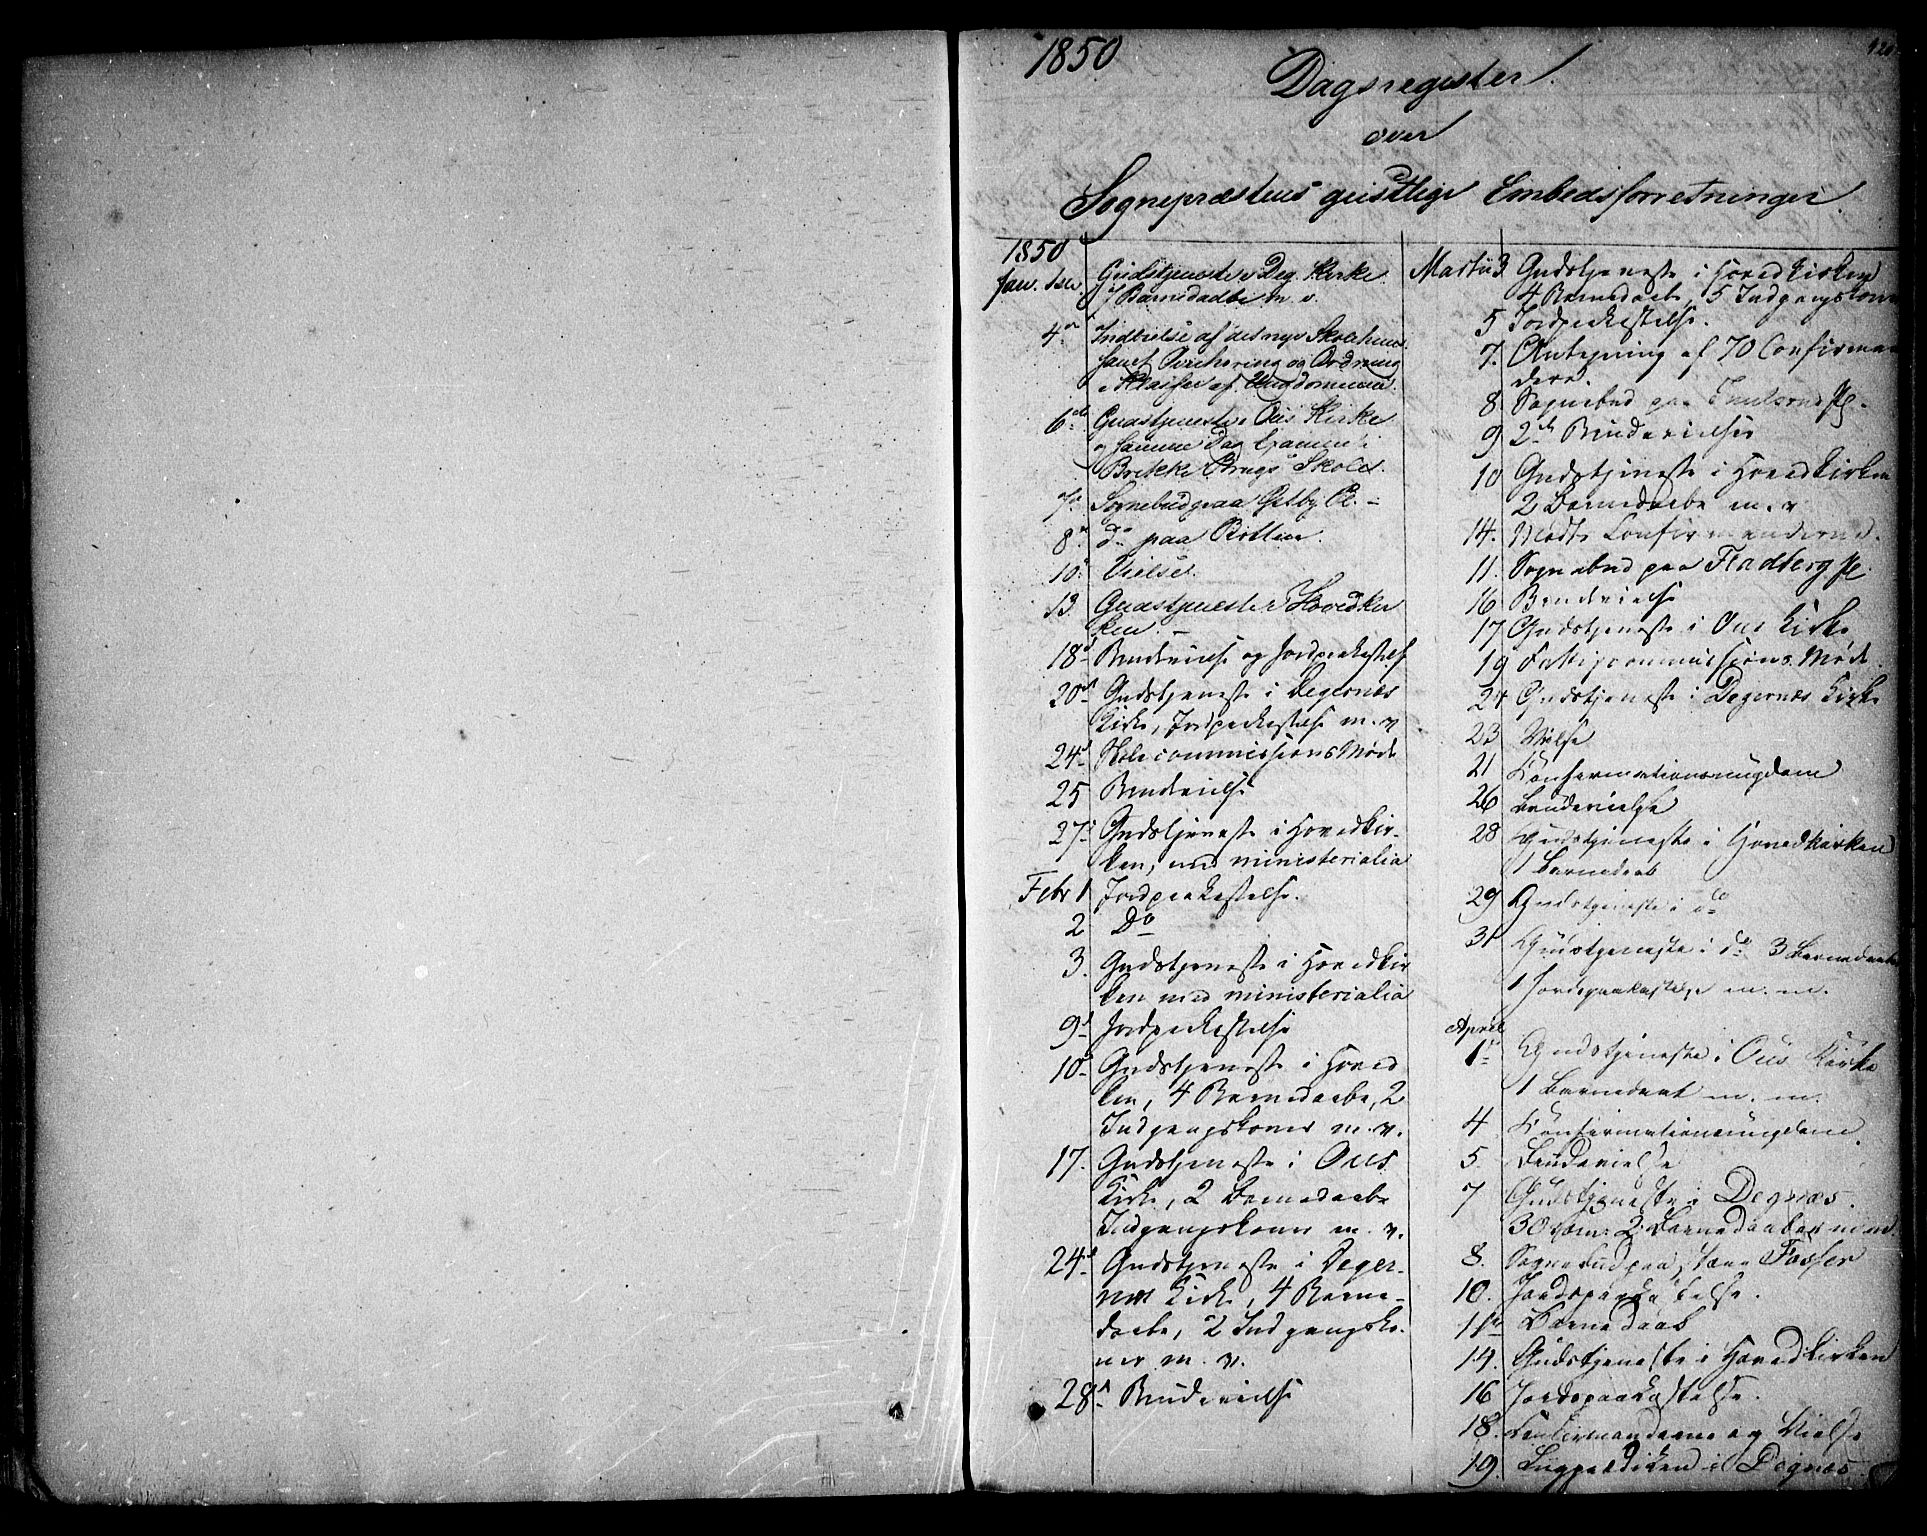 1850
Dagsregister
over
Sognepræstens geistlige Embedsforretninger.
1850
Jan. 1ste Gudstjeneste i Deg. Kirke
Barnedaabe m. v.
4de Indvielse af det nye Skolehuus
samt og Ordning
i Klasser af Ungdommene.
6te Gudstjeneste i Ous Kirke
samme Dag Examen i
Brække Brugs Skole.
7de Sognebud paa Østby Pl.
8de do paa
10. Vielse.
13 Gudstjeneste i Hovedkir
ken.
18d Brudevielse og Jordpaakastelse
20de Gudstjeneste i Degernæs
Kirke, Jordpaakastelse m. v
24d Skolecommissions Møde
25 Brudevielse
27d Gudstjeneste i Hovedkir-
ken, med ministerialia
Febr 1 Jordpaakastelse.
2 Do
3. Gudstjeneste i Hovedkir
ken med ministerialia
9d Jordpaakastelse
10d Gudstjeneste i Hoved
ken, 4 Barnedaabe, 2
Indgangskoner m. v.
17. Gudstjeneste i Ous
Kirke, 2 Barnedaabe
Indgangskoner m. v.
24d Gudstjeneste i Deger-
næs Kirke, 4 Barne-
daabe, 2 Indgangsko-
ner m. v.
28d Brudevielse
Martii 3. Gudstjeneste i Hovedkirken
4 Barnedaabe, 5 Indgangskoner
5 Jordpaakastelse.
7. Antegning af 70 Confirman
dere.
8 Sognebud paa
9 2de Brudevielser
10 Gudstjeneste i Hovedkirken
2 Barnedaabe m. v
14. Mødte Confirmanderne.
11. Sognebud paa Fladberg Pl.
16 Brudevielse
17 Gudstjeneste i Ous Kirke
19 Fattigcommissions Møde.
24 Gudstjeneste i Degernæs Kirke
23 Vielse
21 Konfirmationsungdom
26 Brudevielse
28 Gudstjeneste i Hovedkirken
1 Barnedaab
29 Gudstjeneste i do
31 Gudstjeneste i do 3 Barnedaabe
1 Jordspaakastelse m. m.
April
1d Gudstjeneste i Ous Kirke
1 Barnedaab m. m.
4 Konfirmationsungdom
5. Brudevielse
7 Gudstjeneste i Degnæs
30 Kom: 2 Barnedaaber m m.
8. Sognebud paa Fosser
10. Jordspaakastelse.
Barnedaab
14. Gudstjeneste i Hovedkirken
16 Jordspaakastelse.
18. Konfirmanderne og Vielse
19. i Degnæs